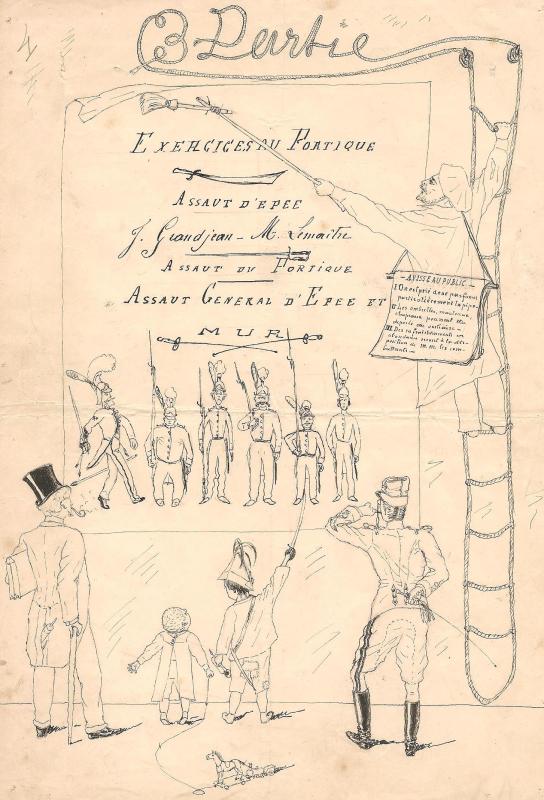 3 Partie
EXERCICES AU PORTIQUE
ASSAUT D'EPEE
J. Grandjean - M. Lemaitre
ASSAUT DU PORTIQUE
ASSAUT GENERAL D'EPEE ET
MUR
- AVISSEAU PUBLIC -
I On est prié de ne pas fumer
particulièrement la pipe.
II Les ombrelles, manteaux,
chapeaux peuvent être
déposés au vestiaire -
III Des rafraichissements en
abondance seront à la dis-
position de M.M. les com-
battants -